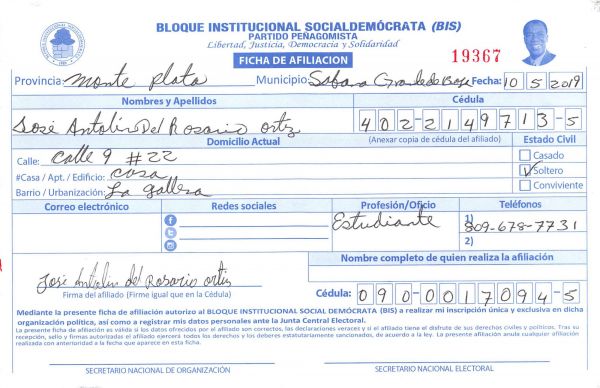 BLOQUE INSTITUCIONAL SOCIALDEMÓCRATA (BIS)
PARTIDO PEÑAGOMISTA
Libertad, Justicia, Democracia y Solidaridad
FICHA DE AFILIACION
19367
Provincia: Monte Plata Municipio: Sabana Grande de Boya Fecha: 10 5 2019
Nombres y Apellidos Cédula
José Antolin Del Rosario ortiz 402-2149713-5
Domicilio Actual (Anexar copia de cédula del afiliado) Estado Civil
Calle: Calle 9 #22 Casado
#Casa / Apt. / Edificio: casa Soltero
Barrio / Urbanización: La gallera Conviviente
Correo electrónico Redes sociales Profesión/Oficio Teléfonos
Estudiante 1) 809-678-7731
2)
Nombre completo de quien realiza la afiliación
José Antolin del Rosario ortiz
Firma del afiliado (Firme igual que en la Cédula) Cédula: 090-0017094-5
Mediante la presente ficha de afiliación autorizo al BLOQUE INSTITUCIONAL SOCIAL DEMÓCRATA (BIS) a realizar mi inscripción única y exclusiva en dicha
organización política, así como a registrar mis datos personales ante la Junta Central Electoral.
La presente ficha de afiliación es válida si los datos ofrecidos por el afiliado son correctos, las declaraciones veraces y si el afiliado tiene el disfrute de sus derechos civiles y políticos. Tras su
recepción, sello y firmas autorizadas el afiliado ejercerá todos los derechos y los deberes estatutariamente sancionados, de acuerdo a la ley. La presente afiliación anula cualquier afiliación
realizada con anterioridad a la fecha que aparece en esta ficha.
SECRETARIO NACIONAL DE ORGANIZACIÓN SECRETARIO NACIONAL ELECTORAL